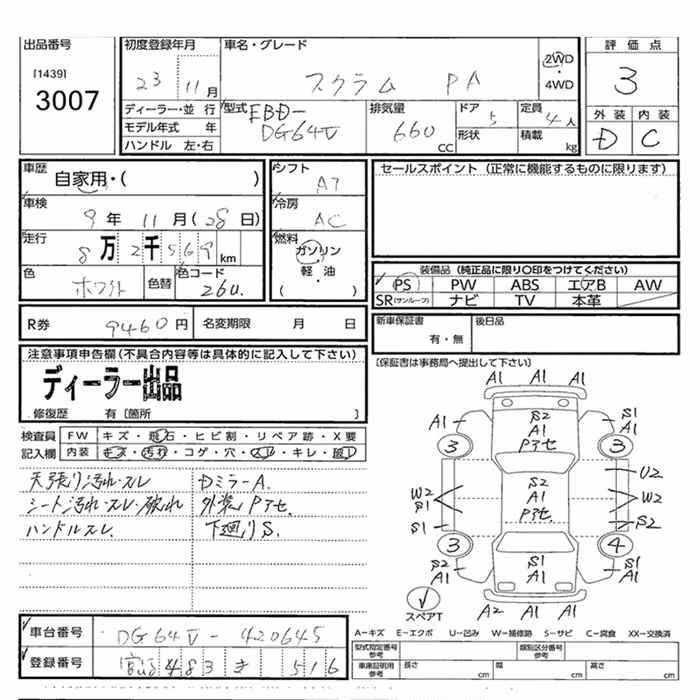 出品番号
[1439]
3007
初度登録年月
23 11 月
車名・グレード
スクラム PA
2WD
・
4WD
評価点
3
外装 内装
D C
ディーラー・並行
モデル年式 年
ハンドル 左・右
型式 EBD-
DG64V
排気量
660
CC
ドア 5
形状
定員 4 人
積載 kg
車歴
自家用・( )
車検
9 年 11 月 (28 日)
走行
8 万 2 千 5 6 9 km
色
ホワイト
色替
色コード
26U.
シフト
AT
冷房
AC
燃料
ガソリン
・
軽・油
( )
セールスポイント (正常に機能するものに限ります)
装備品 (純正品に限り○印をつけてください)
PS PW ABS エアB AW
SR(サンルーフ) ナビ TV 本革
R券 9460 円 名変期限 月 日
新車保証書
有・無
後日品
[保証書は事務局へ提出して下さい]
注意事項申告欄(不具合内容等は具体的に記入して下さい)
ディーラー出品
修復歴 有 [箇所 ]
検査員 FW キズ・飛石・ヒビ割・リペア跡・X要
記入欄 内装 キズ・汚れ・コゲ・穴・スレ・キレ・破レ
天張り汚れ・スレ Dミラー A.
シート汚れ・スレ・破れ 外装 Pアセ.
ハンドルスレ. 下廻り S.
A1 A1 A1
S2
A1
Pアセ
A1
S1
A1
3 3
U2
W2
S1
S2
A1
Pアセ
W2
S1
S2
3 4
S2
A1
S1
A1
S1
A1
スペアT
A2 A1 A1
車台番号 DG64V-420645
登録番号 483 き 516
A-キズ E-エクボ U-凹み W-補修跡 S-サビ C-腐食 XX-交換済
型式指定番号
参考
類別区分番号
参考
車庫証明用
参考
長さ cm 幅 cm 高さ cm